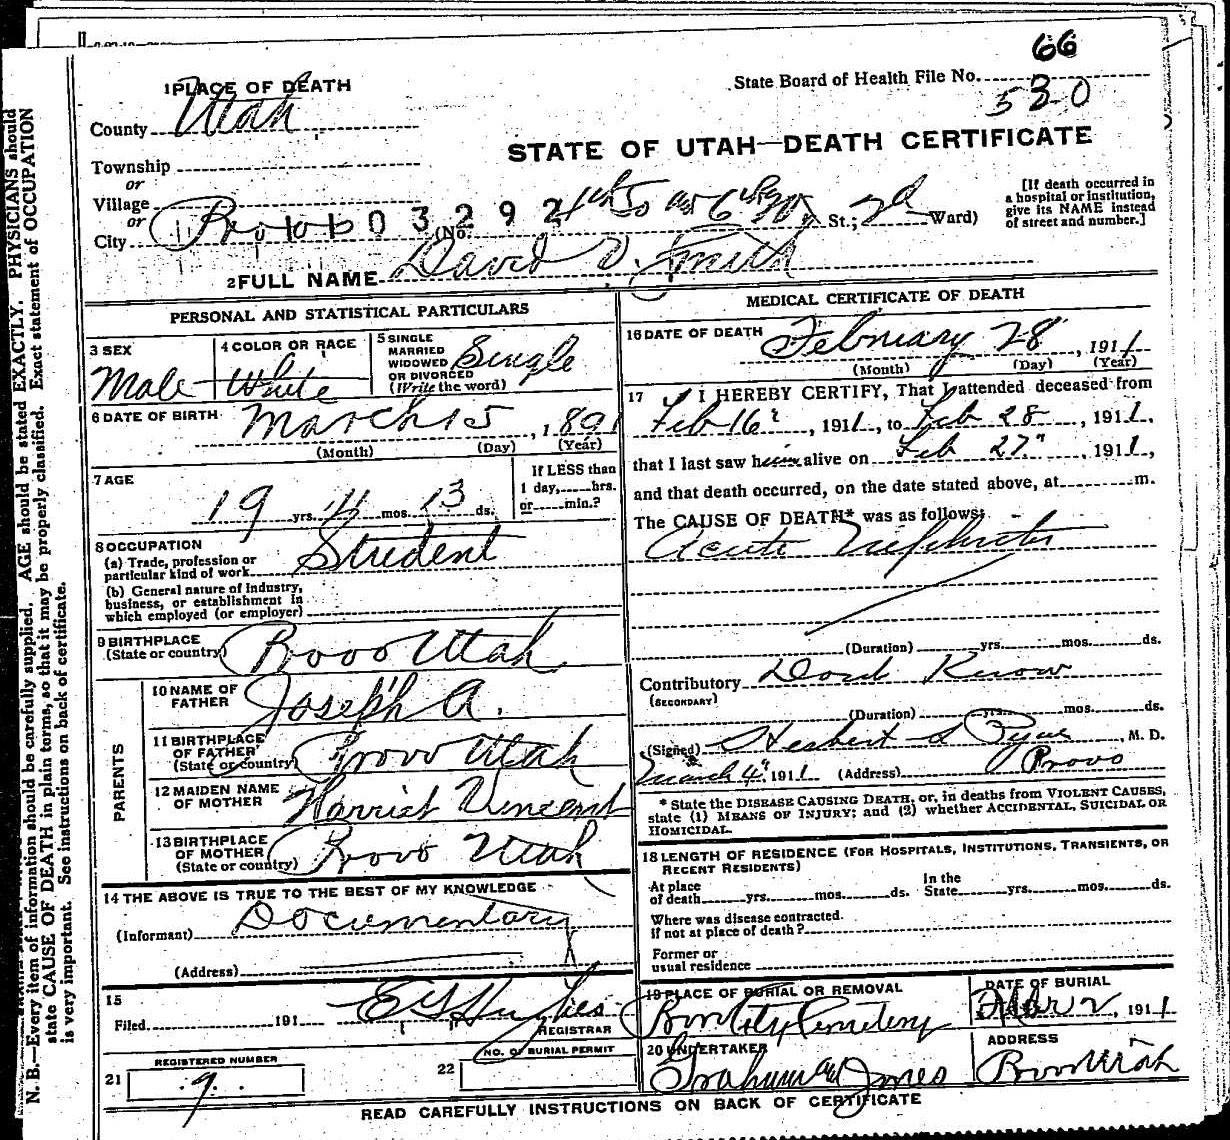 66
State Board of Health File No.
530
1 PLACE OF DEATH
County Utah
STATE OF UTAH—DEATH CERTIFICATE
Township
or
Village
or
City Provo
0 3 2 9 2
(No. St.; 2d Ward)
[If death occurred in
a hospital or institution,
give its NAME instead
of street and number.]
2 FULL NAME David V. Smith
PERSONAL AND STATISTICAL PARTICULARS
3 SEX
Male
4 COLOR OR RACE
White
5 SINGLE
MARRIED
WIDOWED
OR DIVORCED
(Write the word)
Single
6 DATE OF BIRTH March 15, 1891
(Month) (Day) (Year)
7 AGE
19 yrs. 11 mos. 13 ds.
If LESS than
1 day,......hrs.
or......min.?
8 OCCUPATION
(a) Trade, profession or
particular kind of work Student
(b) General nature of industry,
business, or establishment in
which employed (or employer)
9 BIRTHPLACE
(State or country) Provo Utah
PARENTS
10 NAME OF
FATHER Joseph A.
11 BIRTHPLACE
OF FATHER
(State or country) Provo Utah
12 MAIDEN NAME
OF MOTHER Harriet Vincent
13 BIRTHPLACE
OF MOTHER
(State or country) Provo Utah
14 THE ABOVE IS TRUE TO THE BEST OF MY KNOWLEDGE
(Informant) Documentary
(Address)
15
Filed 191 E G Hughes
REGISTRAR
REGISTERED NUMBER
21 9
NO. OF BURIAL PERMIT
22
MEDICAL CERTIFICATE OF DEATH
16 DATE OF DEATH February 28, 1911
(Month) (Day) (Year)
17 I HEREBY CERTIFY, That I attended deceased from
Feb 16", 1911, to Feb 28, 1911,
that I last saw him alive on Feb 27", 1911,
and that death occurred, on the date stated above, at m.
The CAUSE OF DEATH* was as follows:
Acute Nephritis
(Duration) yrs. mos. ds.
Contributory Dont Know
(SECONDARY)
(Duration) yrs. mos. ds.
(Signed) Herbert S Pyne, M. D.
March 4" 1911 (Address) Provo
* State the DISEASE CAUSING DEATH, or, in deaths from VIOLENT CAUSES,
state (1) MEANS OF INJURY; and (2) whether ACCIDENTAL, SUICIDAL OR
HOMICIDAL.
18 LENGTH OF RESIDENCE (FOR HOSPITALS, INSTITUTIONS, TRANSIENTS, OR
RECENT RESIDENTS)
At place
of death yrs. mos. ds.
In the
State yrs. mos. ds.
Where was disease contracted.
if not at place of death?
Former or
usual residence
19 PLACE OF BURIAL OR REMOVAL
Provo City Cemetery
DATE OF BURIAL
Mar 2, 1911
20 UNDERTAKER
Graham and Jones
ADDRESS
Provo Utah
READ CAREFULLY INSTRUCTIONS ON BACK OF CERTIFICATE
N. B.—Every item of information should be carefully supplied. AGE should be stated EXACTLY. PHYSICIANS should
state CAUSE OF DEATH in plain terms, so that it may be properly classified. Exact statement of OCCUPATION
is very important. See instructions on back of certificate.